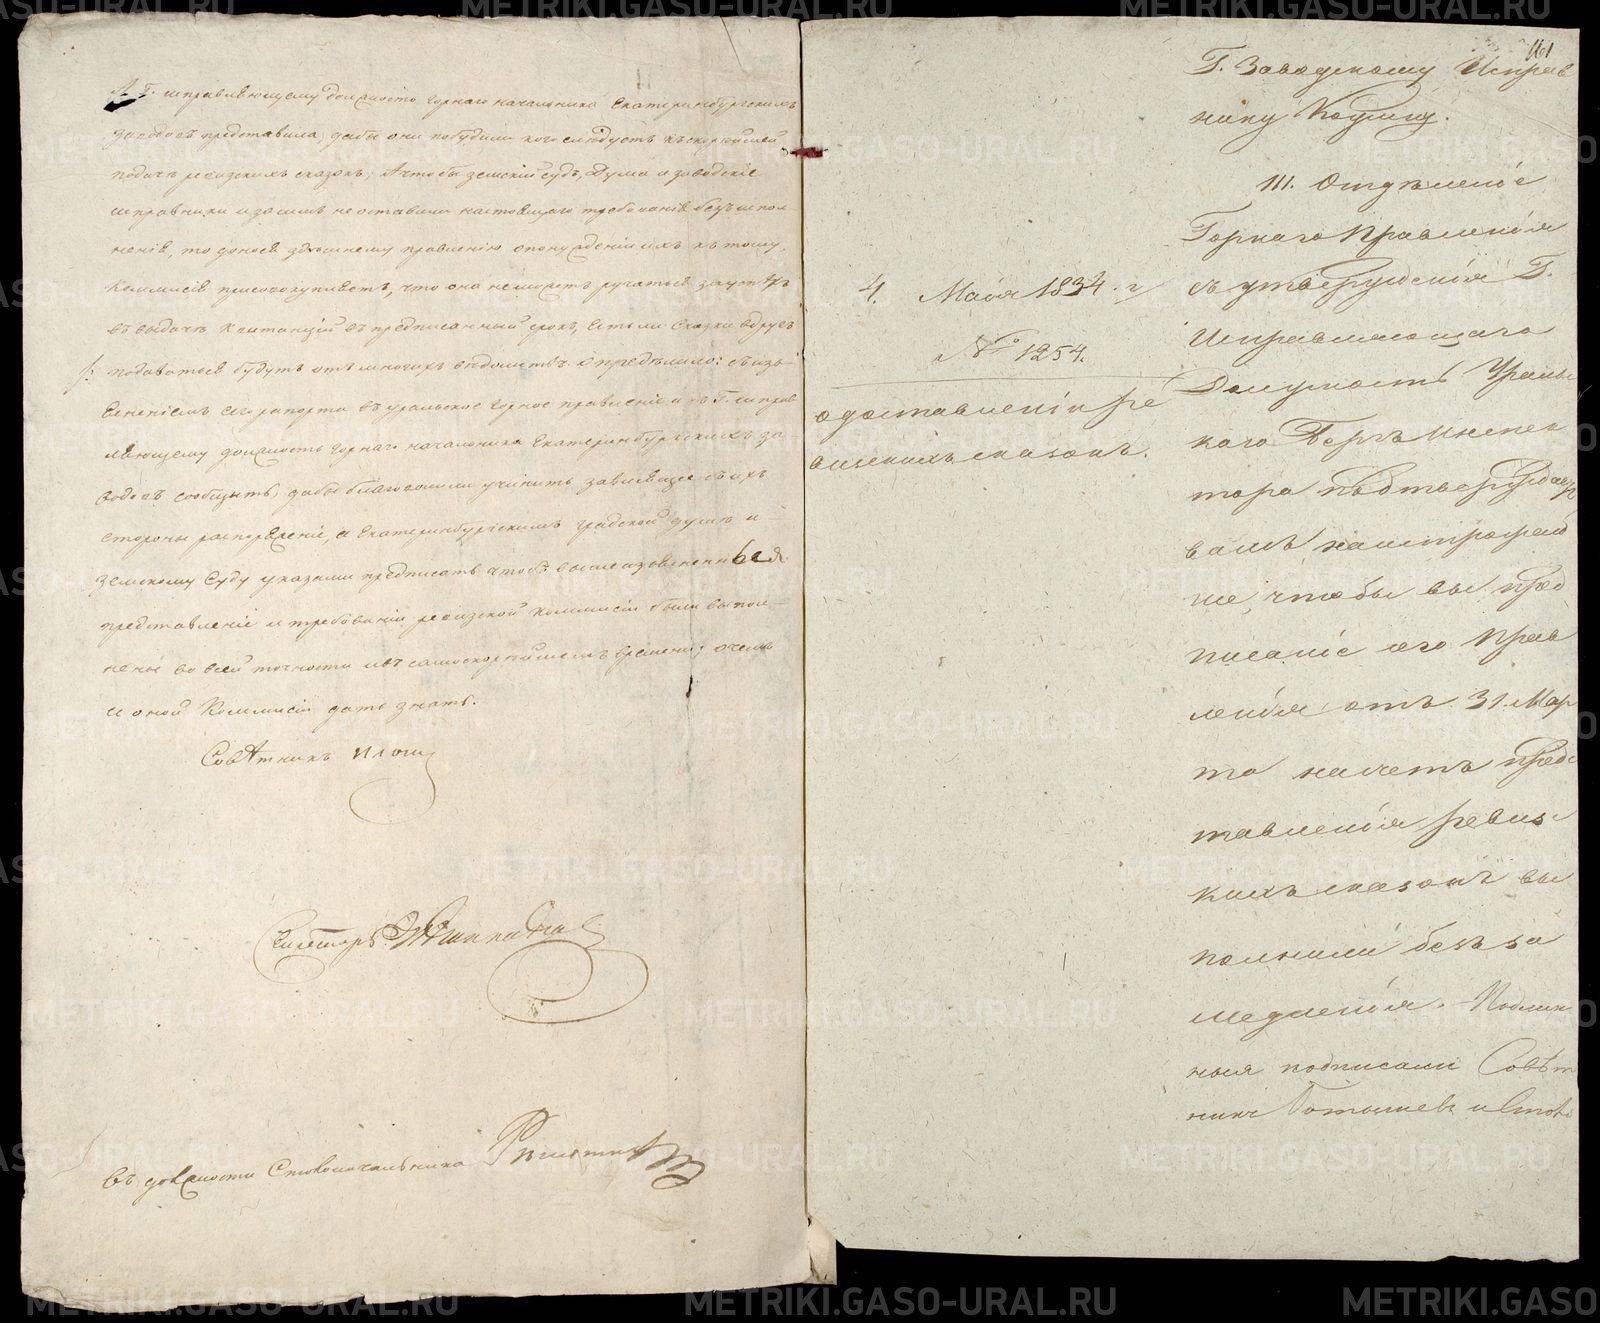 и Г. исправляющему должность горнаго начальника Екатеринбургскихъ
заводовъ представила, дабы они побудили кого следуетъ къ скорейшей
подаче ревизскихъ сказокъ; А чтобы земский судъ, Дума и заводские
исправники и засимъ не оставили настоящаго требования безъ испол-
нения, то донося здешнему правлению о понуждении ихъ къ тому,
Коммисия присовокупляетъ, что она не можетъ ручаться за успехъ
въ выдаче квитанций въ предписанный срокъ, естьли сказки вдругъ
подаваться будутъ отъ многихъ ведомствъ. Определило: съ изъ-
ясненiемъ сего рапорта въ уральское горное правление и къ Г. исправ
ляющему должность Горнаго начальника Екатеринбургскихъ за-
водовъ сообщить, дабы благоволили учинить зависящее съ ихъ
стороны распоряжение, а Екатеринбургскимъ градской думе и
земскому Суду указами предписать чтобъ вышеизъясненныя
представлении и требовании ревизской коммисии были выпол-
нены во всей точности и въ самоскорейшемъ времени; о чемъ
и оной Коммисии дать знать.
Советникъ
Секретарь
въ должности Столоначальника
161
Г. Заводскому Исправ
нику
III. Отделение
Горнаго Правления
съ утверждения Г.
Исправляющаго
Должность Уральс
каго Бергъ Инспек
тора подтверждаетъ
вамъ наистрожай
ше, чтобы вы пред
писание его Прав
ления отъ 31. Мар
та насчетъ предс
тавления ревизс
кихъ сказокъ вы
полнили безъ за
медления. Подлин
ныя подписали Совет
никъ и Столо
4. Маия 1834. г
№ 1254.
о доставлении ре
визскихъ сказокъ.